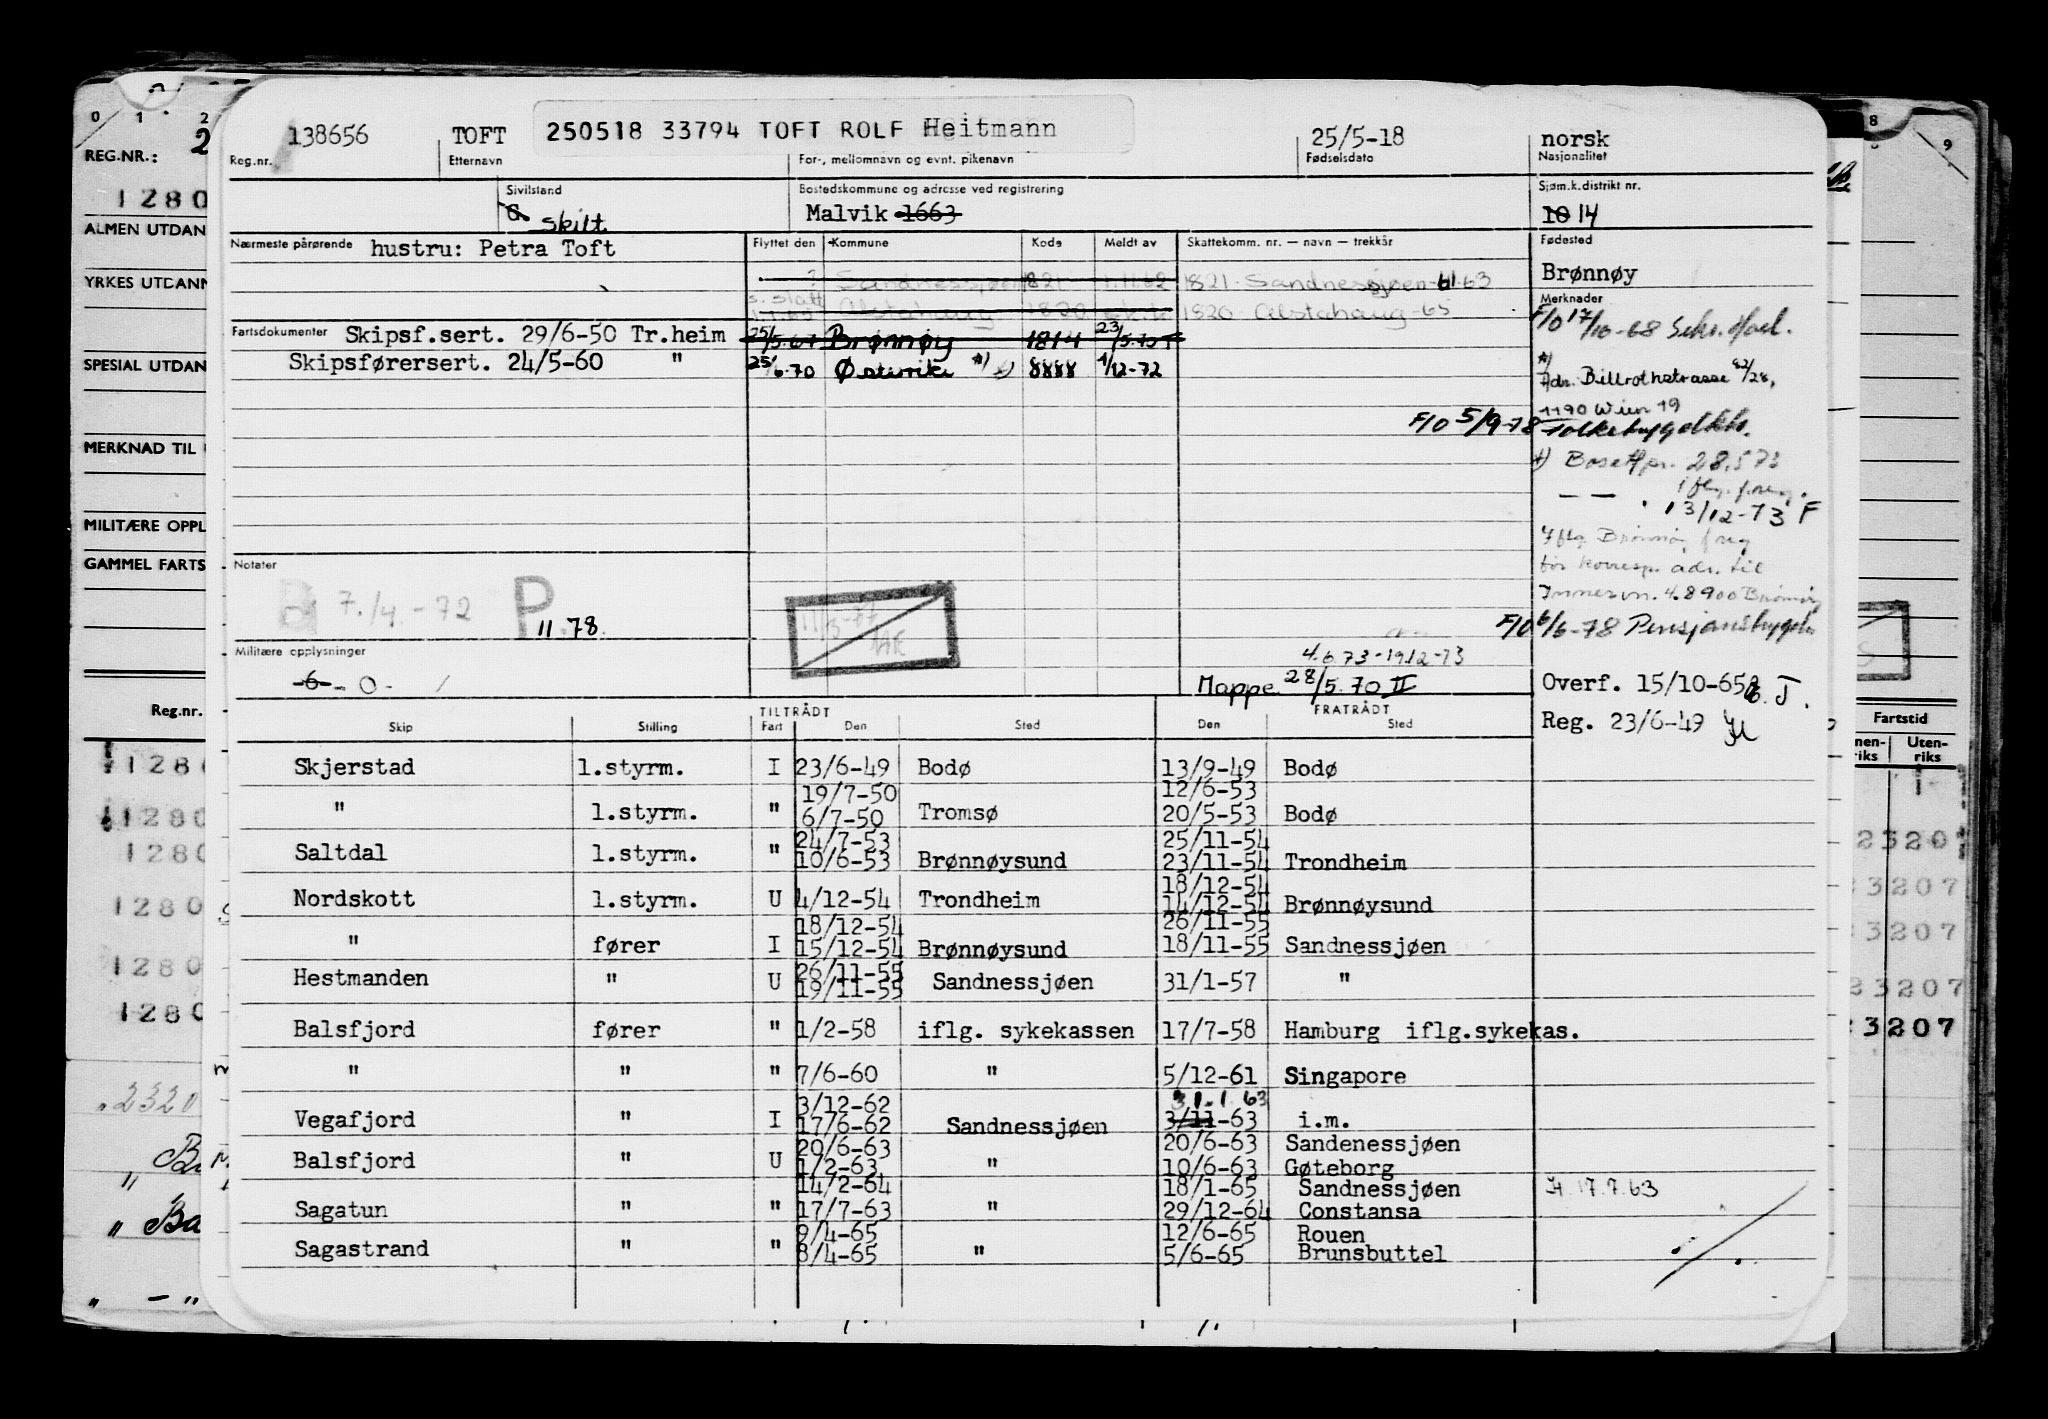 138656 TOFT 250518 33794 TOFT ROLF Heitmann 25/5-18 norsk
Reg.nr. Etternavn For-, mellomnavn og evnt. pikenavn Fødselsdato Nasjonalitet
Sivilstand Bostedskommune og adresse ved registrering Sjøm.k.distrikt nr.
G. skilt Malvik 1663 10 14
Nærmeste pårørende hustru: Petra Toft Flyttet den Kommune Kode Meldt av Skattekomm. nr. — navn — trekkår Fødested
? Sandnessjøen 1821 1.11.62 1821 Sandnessjøen 61.63 Brønnøy
s. slatt Alstahaug 1820 1820 Alstahaug-65 Merknader
F/O 17/10-68
Fartsdokumenter Skipsf.sert. 29/6-50 Tr.heim 25/5.67 Brønnøy 1814 23/5.70 F
Skipsførersert. 24/5-60 " 25/6-70 Østerrike *) 8888 1/12-72
*) Adr. Billrothstrasse 82/28,
1190 Wien 19
F/O 5/9-78
Bosatt pr. 28.573
— — . 13/12-73 F
Iflg. Brønnøy freg
før korresp. adr. til
4. 8900 Brønnøy
Notater
7./4.-72 P 11.78.
F/O 6/6-78 Pensjonstrygd
Militære opplysninger
-6- - 0 -
4.6.73-19.12-73
Mappe 28/5.70 II
Overf. 15/10-65
Reg. 23/6-49
TILTRÅDT FRATRÅDT
Skip Stilling Fart Den Sted Den Sted
Skjerstad 1.styrm. I 23/6-49 Bodø 13/9-49 Bodø
19/7-50 12/6-53
" 1.styrm. " 6/7-50 Tromsø 20/5-53 Bodø
24/7-53 25/11-54
Saltdal 1.styrm. " 10/6-53 Brønnøysund 23/11-54 Trondheim
18/12-54
Nordskott 1.styrm. U 4/12-54 Trondheim 14/12-54 Brønnøysund
18/12-54 26/11-55
" fører I 15/12-54 Brønnøysund 18/11-55 Sandnessjøen
26/11-55
Hestmanden " U 19/11-55 Sandnessjøen 31/1-57 "
Balsfjord fører " 1/2-58 iflg. sykekassen 17/7-58 Hamburg iflg.sykekas.
" " " 7/6-60 " 5/12-61 Singapore
3/12-62 31.1.63
Vegafjord " I 17/6-62 Sandnessjøen 3/11-63 i.m.
20/6-63 20/6-63 Sandenessjøen
Balsfjord " U 1/2-63 " 10/6-63 Gøteborg
14/2-64 18/1-65 Sandnessjøen 17.7.63
Sagatun " " 17/7-63 " 29/12-64 Constansa
9/4-65 12/6-65 Rouen
Sagastrand " " 8/4-65 " 5/6-65 Brunsbuttel
0 1 2
REG.NR.: 2
1280
ALMEN UTDAN
YRKES UTDANN
SPECIAL UTDAN
MERKNAD TIL
MILITÆRE OPPL
GAMMEL FARTS
Reg.nr.
1280
1280
1280
1280
1280
1280
2320
8 9
Fartstid
nen-riks Uten-riks
1
23207
3207
3207
23207
3207